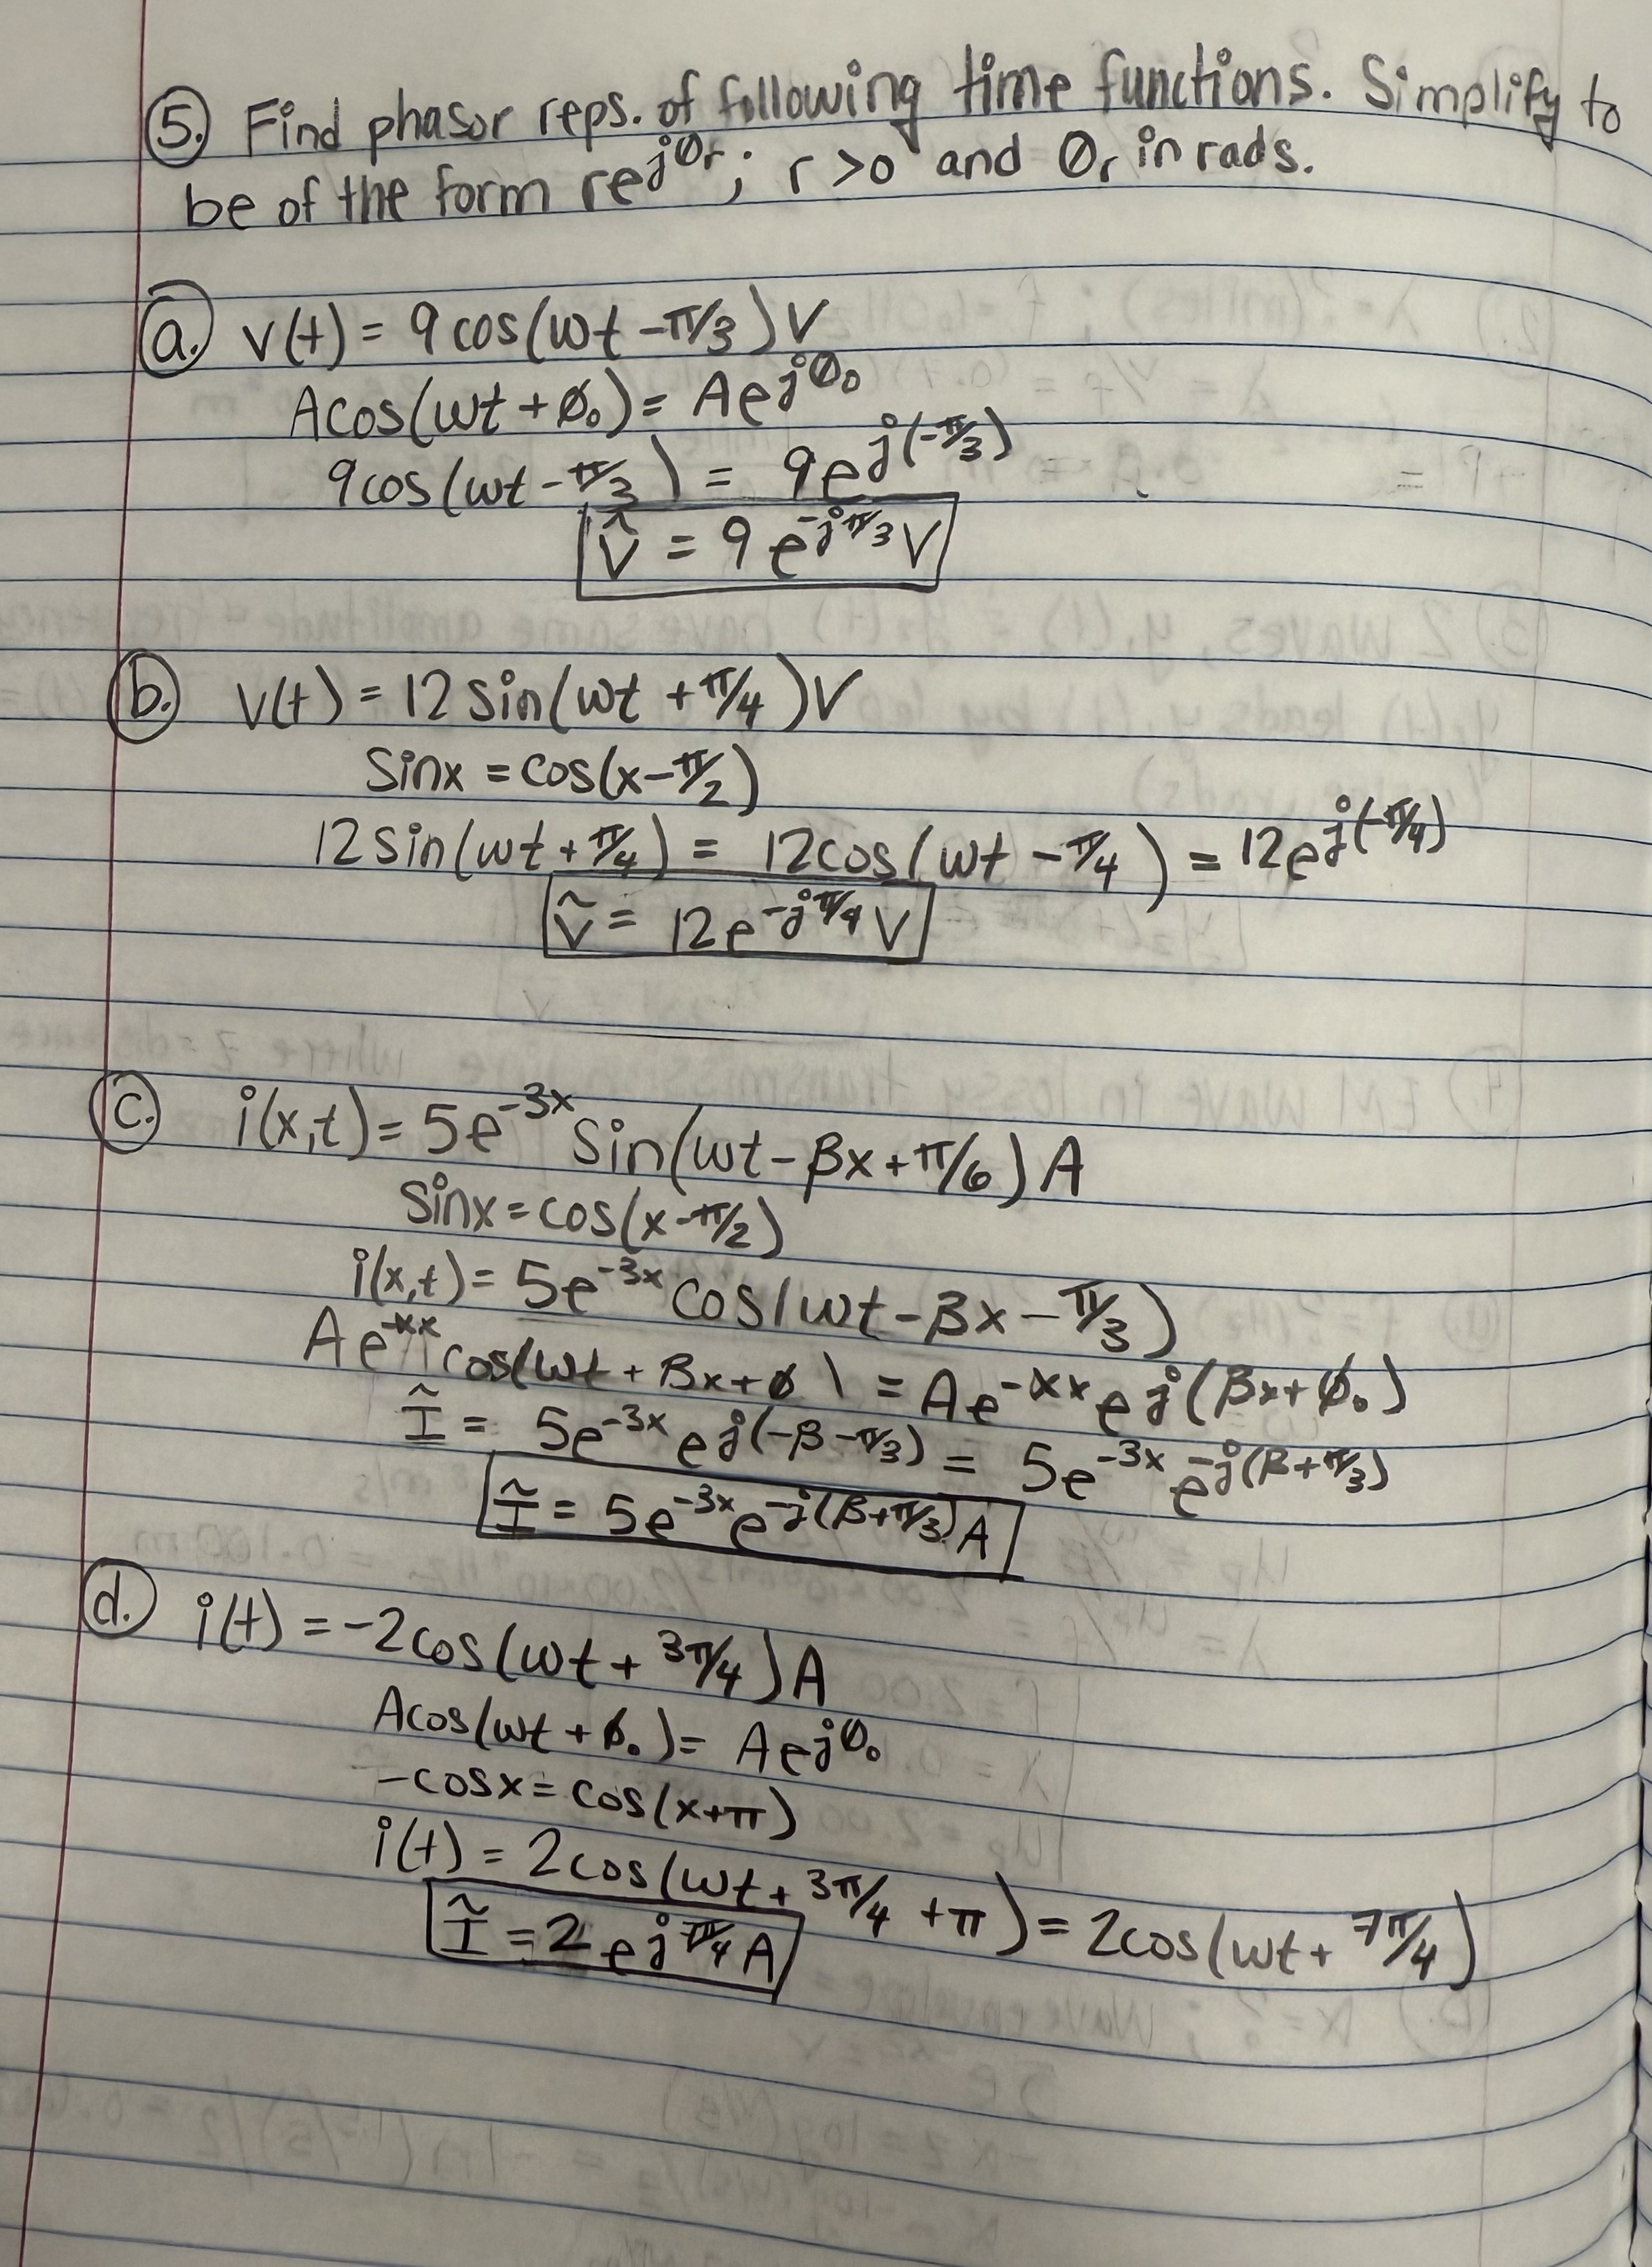 5. Find phasor reps. of following time functions. Simplify to
be of the form re^jØr; r>0 and Ør in rads.
a. v(t) = 9cos(wt-π/3)V
Acos(wt+Ø₀) = Ae^jØ₀
9cos(wt-π/3) = 9e^j(-π/3)
V̂ = 9e^-jπ/3 V
b. v(t) = 12sin(wt+π/4)V
Sinx = cos(x-π/2)
12sin(wt+π/4) = 12cos(wt-π/4) = 12e^j(-π/4)
Ṽ = 12e^-jπ/4 V
c. i(x,t) = 5e^-3x Sin(wt-βx+π/6)A
Sinx = cos(x-π/2)
i(x,t) = 5e^-3x cos(wt-βx-π/3)
Ae^-αx cos(wt+βx+ø) = Ae^-αx e^j(βx+Ø₀)
Ĩ = 5e^-3x e^j(-β-π/3) = 5e^-3x e^-j(β+π/3)
Ĩ = 5e^-3x e^-j(β+π/3) A
d. i(t) = -2cos(wt+3π/4)A
Acos(wt+ø₀) = Ae^jØ₀
-cosx = cos(x+π)
i(t) = 2cos(wt+3π/4+π) = 2cos(wt+7π/4)
Ĩ = 2e^j7π/4 A